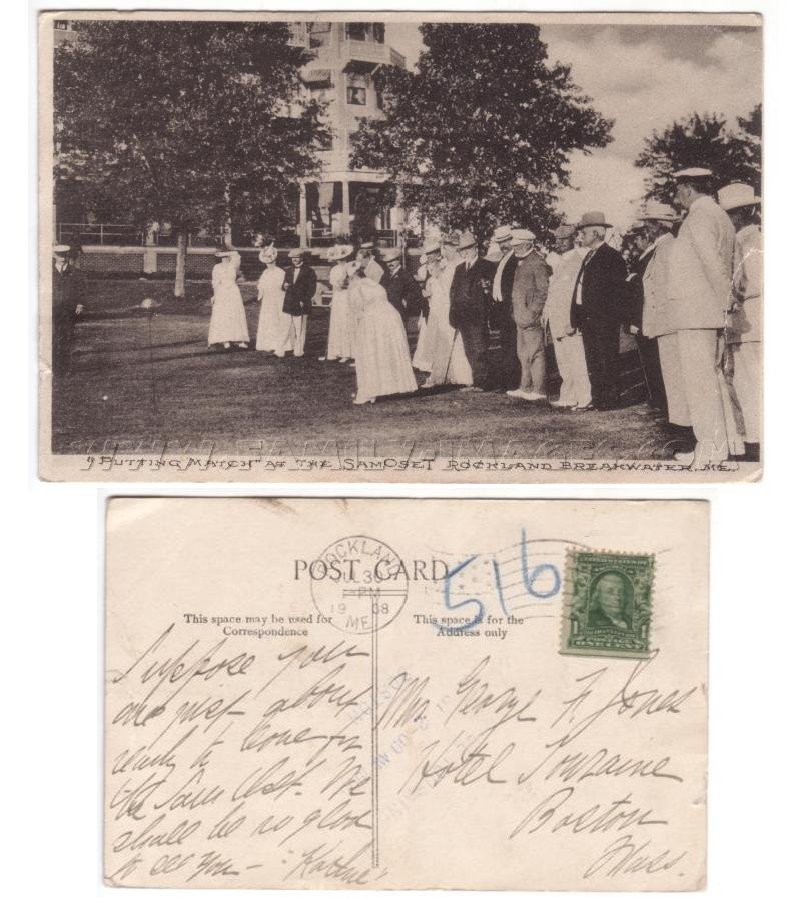 "PUTTING MATCH" AT THE SAMOSET ROCKLAND BREAKWATER, ME.
WWW.FAMILY-IMAGES.COM
POST CARD
ROCKLAND
JUL 30
PM
1908
ME.
516
This space may be used for
Correspondence
This space is for the
Address only
UNITED STATES
ONE CENT
Suppose you
are just about
ready to leave for
the Samoset. We
shall be so glad
to see you –
Mrs. George F. Jones
Hotel Touraine
Boston
Mass.